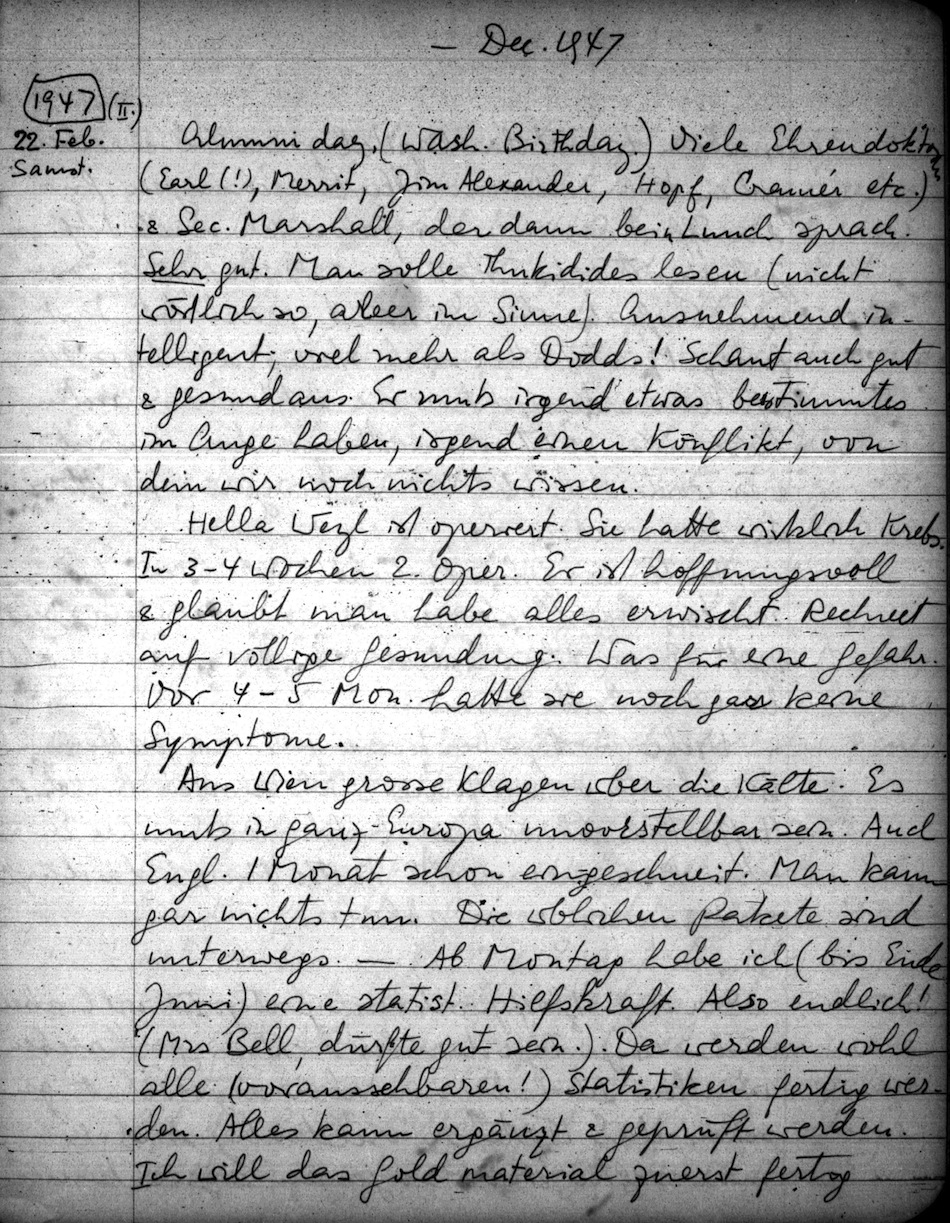 — Dec. 1947
1947 (II.)
22. Feb.
Samst.
Alumni day, (Wash. Birthday.) Viele Ehrendoktoren
(Earl (!), Merrit, Jim Alexander, Hopf, Cramér etc.)
& Sec. Marshall, der dann beim Lunch sprach.
Sehr gut. Man solle Thukidides lesen (nicht
wörtlich so, aber im Sinne). Ausnehmend in-
telligent; viel mehr als Dodds! Schaut auch gut
& gesund aus. Er muss irgend etwas bestimmtes
im Auge haben, irgend einen Konflikt, von
dem wir noch nichts wissen.
Hella Weyl ist operiert. Sie hatte wirklich Krebs.
In 3–4 Wochen 2. Oper. Er ist hoffnungsvoll
& glaubt man habe alles erwischt. Rechnet
auf völlige Gesundung. Was für eine Gefahr.
Vor 4–5 Mon. hatte sie noch gar keine
Symptome.
Aus Wien grosse Klagen über die Kälte. Es
muss in ganz Europa unvorstellbar sein. Auch
Engl. 1 Monat schon eingeschneit. Man kann
gar nichts tun. Die üblichen Pakete sind
unterwegs. — Ab Montag habe ich (bis Ende
Juni) eine statist. Hilfskraft. Also endlich!
(Mrs Bell, dürfte gut sein.). Da werden wohl
alle (voraussehbaren!) Statistiken fertig wer-
den. Alles kann ergänzt & geprüft werden.
Ich will das Gold material zuerst fertig